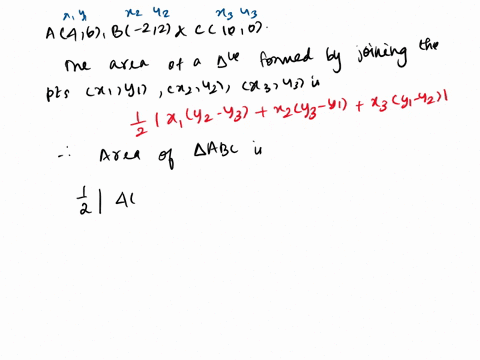 x, y x2 y2 x3 y3
A(4,6), B(-2,2) & C(10,0).
The area of a Δle formed by joining the
pts (x1,y1), (x2,y2), (x3,y3) is
1/2 | x1(y2-y3) + x2(y3-y1) + x3(y1-y2)|
∴ Area of ΔABC is
1/2 | 4(